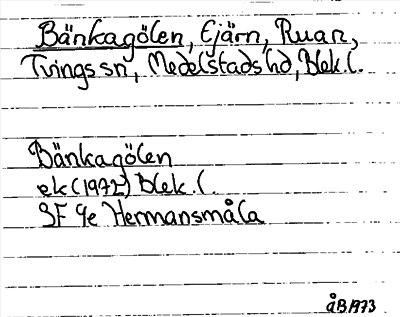 Bänkagölen, Tjärn, Ruan,
Tvings sn, Medelstads hd, Blek. l.
Bänkagölen
ek (1972) Blek. l.
3F 9e Hermansmåla
ÅB 1973